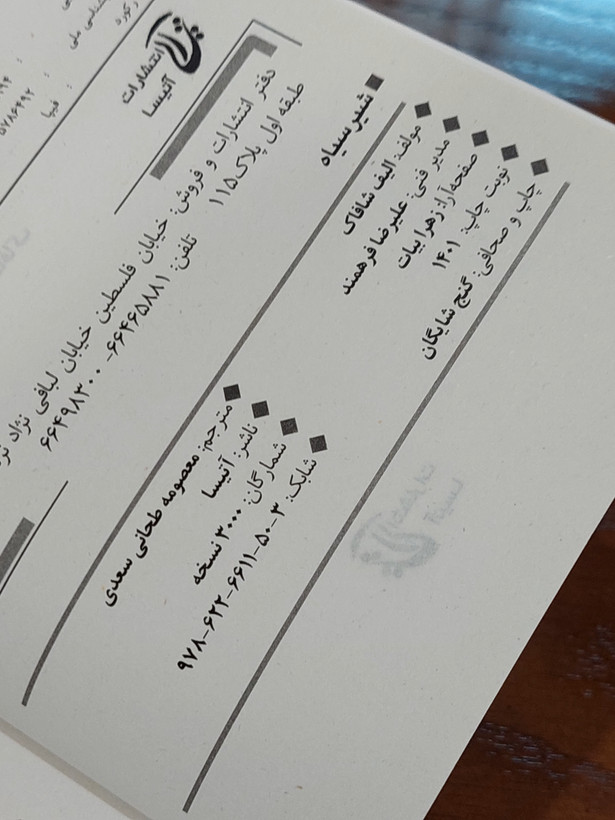 شیر سیاه
مولف: الیف شافاک
مدیر فنی: علیرضا فرهمند
صفحه‌آرا: زهرا بیات
نوبت چاپ: ۱۴۰۱
چاپ و صحافی: گنج شایگان
مترجم: معصومه طحانی سعدی
ناشر: آتیسا
شمارگان: ۳۰۰۰ نسخه
شابک: ۳-۵۰-۶۶۱۱-۶۲۲-۹۷۸
انتشارات
آتیسا
دفتر انتشارات و فروش: خیابان فلسطین خیابان لبافی نژاد
طبقه اول پلاک ۱۱۵ تلفن: ۶۶۴۶۵۸۸۱-۶۶۴۹۸۳۰۰
: فیپا